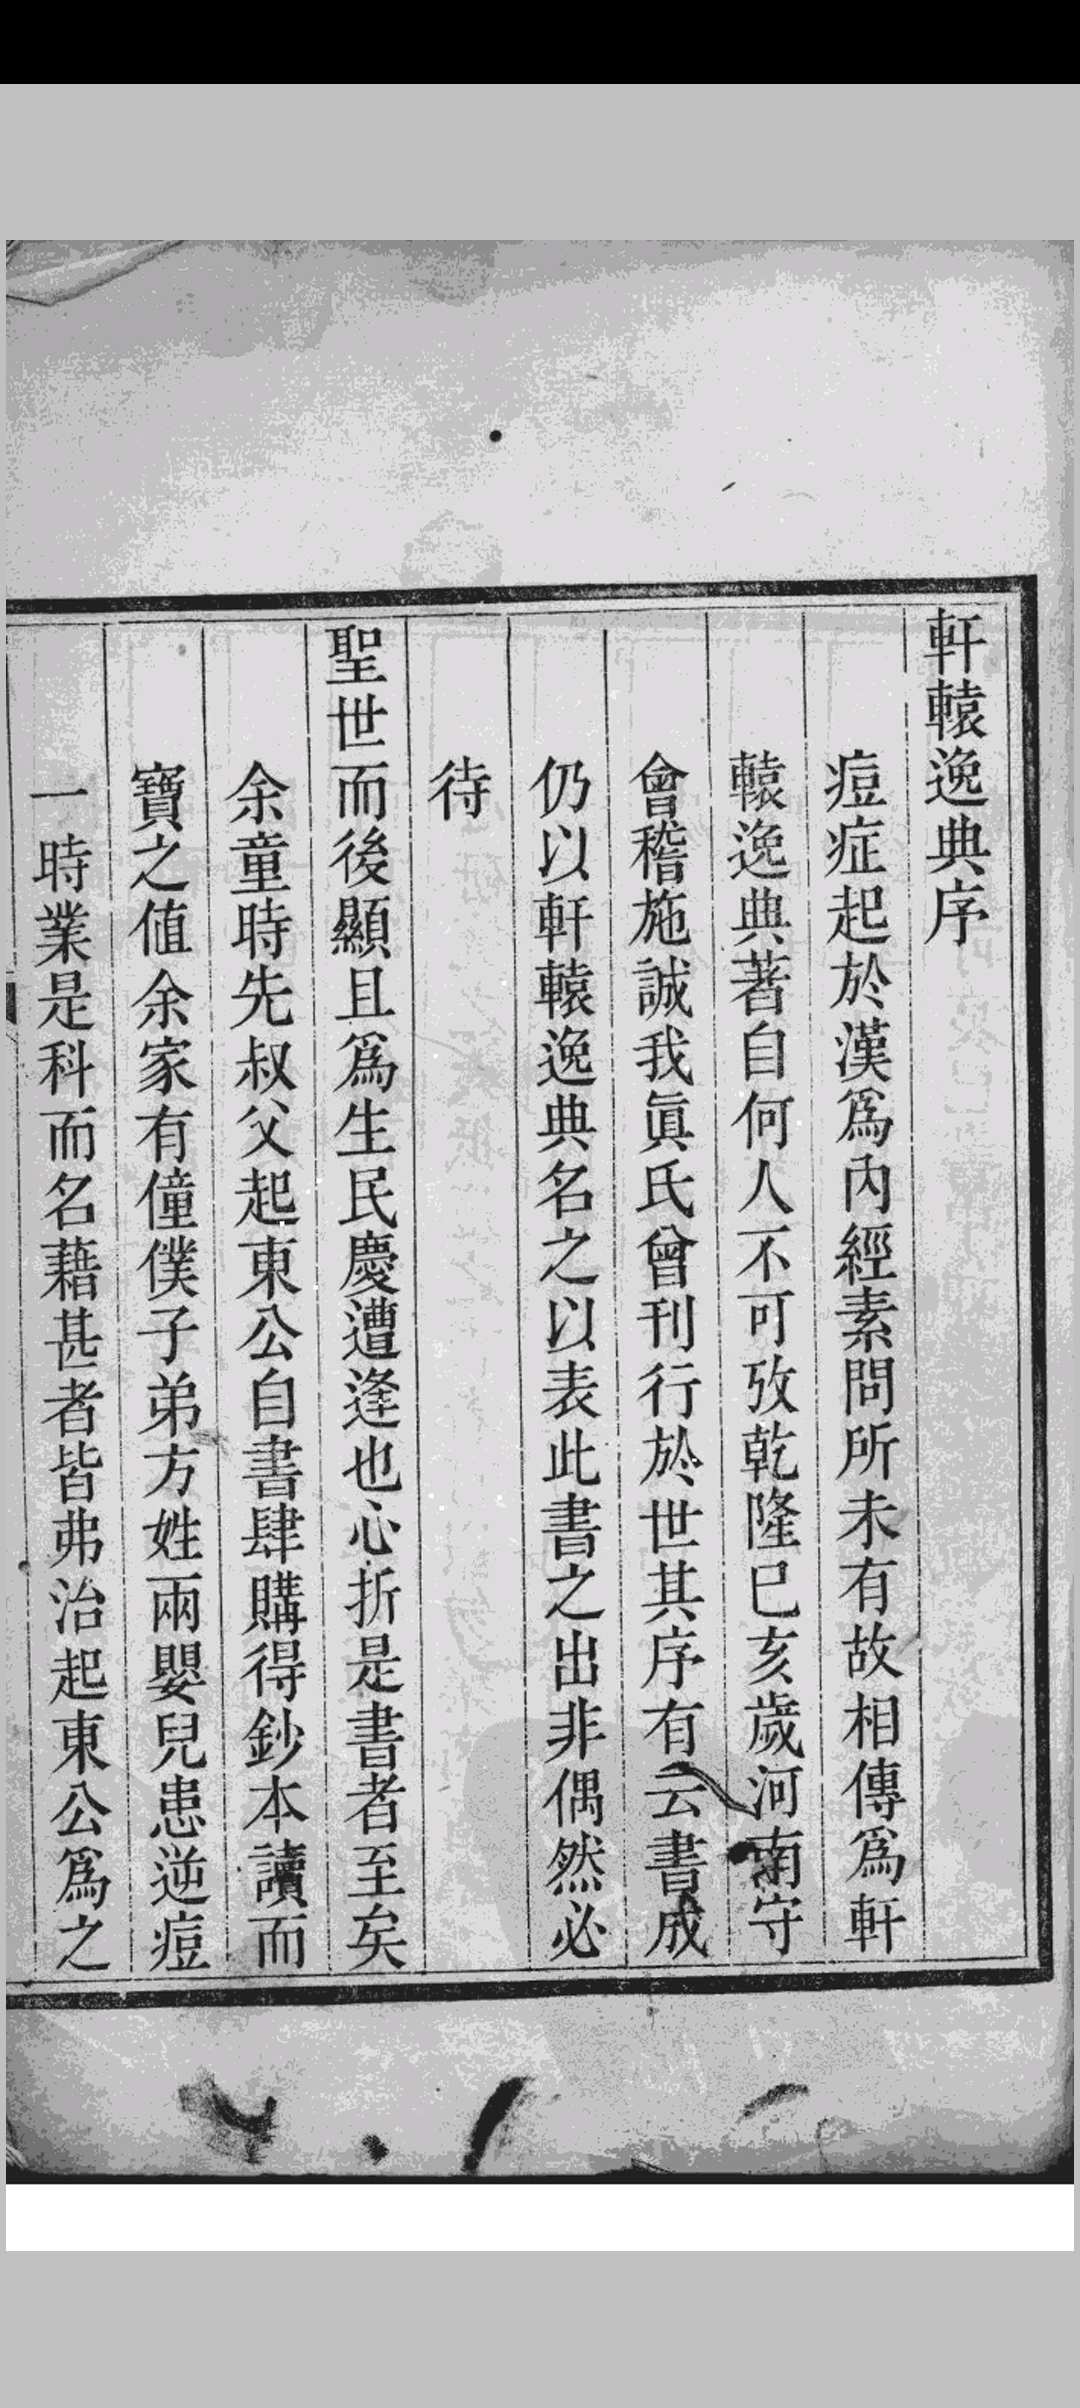 軒轅逸典序
痘症起於漢爲內經素問所未有故相傳爲軒
轅逸典著自何人不可攷乾隆已亥歲河南守
會稽施誠我眞氏曾刊行於世其序有云書成
仍以軒轅逸典名之以表此書之出非偶然必
待
聖世而後顯且爲生民慶遭逢也心折是書者至矣
余童時先叔父起東公自書肆購得鈔本讀而
寶之值余家有僮僕子弟方姓兩嬰兒患逆痘
一時業是科而名藉甚者皆弗治起東公爲之